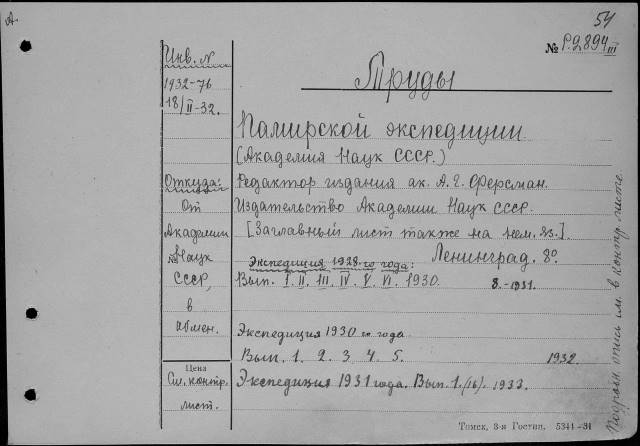 А.
54
№ P.9894 III
Инв. №
1932-76
18/II-32.
Труды
Памирской экспедиции
(Академия Наук СССР.)
Откуда:
Редактор издания ак. А.Е. Ферсман.
От
Издательство Академии Наук СССР.
Академии
[Заглавный лист также на нем. яз.]
Наук
Экспедиция 1928-го года:
Ленинград. 8º
СССР,
Вып. I. II. III. IV. V. VI. 1930.
8.-1931.
в
обмен.
Экспедиция 1930 го года
Вып. 1. 2. 3. 4. 5.
1932.
Цена
См. контр.
лист.
Экспедиция 1931 года. Вып. 1. (16). 1933.
Подробн. опись им. в контр. листе.
Томск, 3-я Гостип. 5344-31